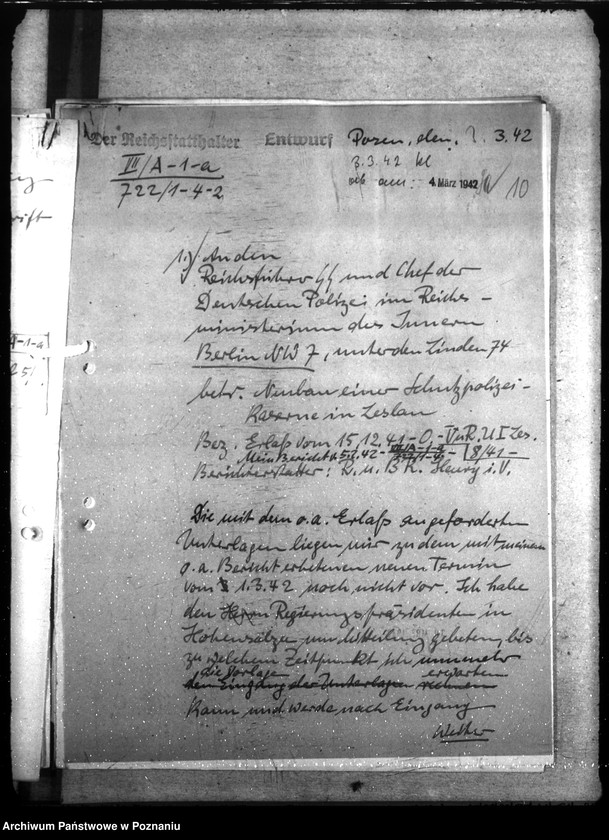 Der Reichsstatthalter Entwurf Posen, den 3.42
VII/A-1-a 3.3.42 kl
722/1-4-2 am: 4. März 1942 10
1.) An den
Reichsführer SS und Chef der
Deutschen Polizei im Reichs-
ministerium des Innern
Berlin NW 7, unter den Linden 74
betr. Neubau einer Schutzpolizei-
Kaserne in Leslau
Bez. Erlaß vom 15.12.41 - O.-VuR. U I Les.
Mein Bericht v. 42 - 8/41 -
Berichterstatter: R. u. B R. Henry i. V.
Die mit dem o.a. Erlaß angeforderten
Unterlagen liegen mir zu dem mit meinem
o.a. Bericht erbetenen neuen Termin
vom 1.3.42 noch nicht vor. Ich habe
den Herrn Regierungspräsidenten in
Hohensalza um Mitteilung gebeten, bis
zu welchem Zeitpunkt ich nunmehr
die Vorlage erwarten
den Eingang der Unterlagen rechnen
kann und werde nach Eingang
Weiter
A-1-a
Archiwum Państwowe w Poznaniu